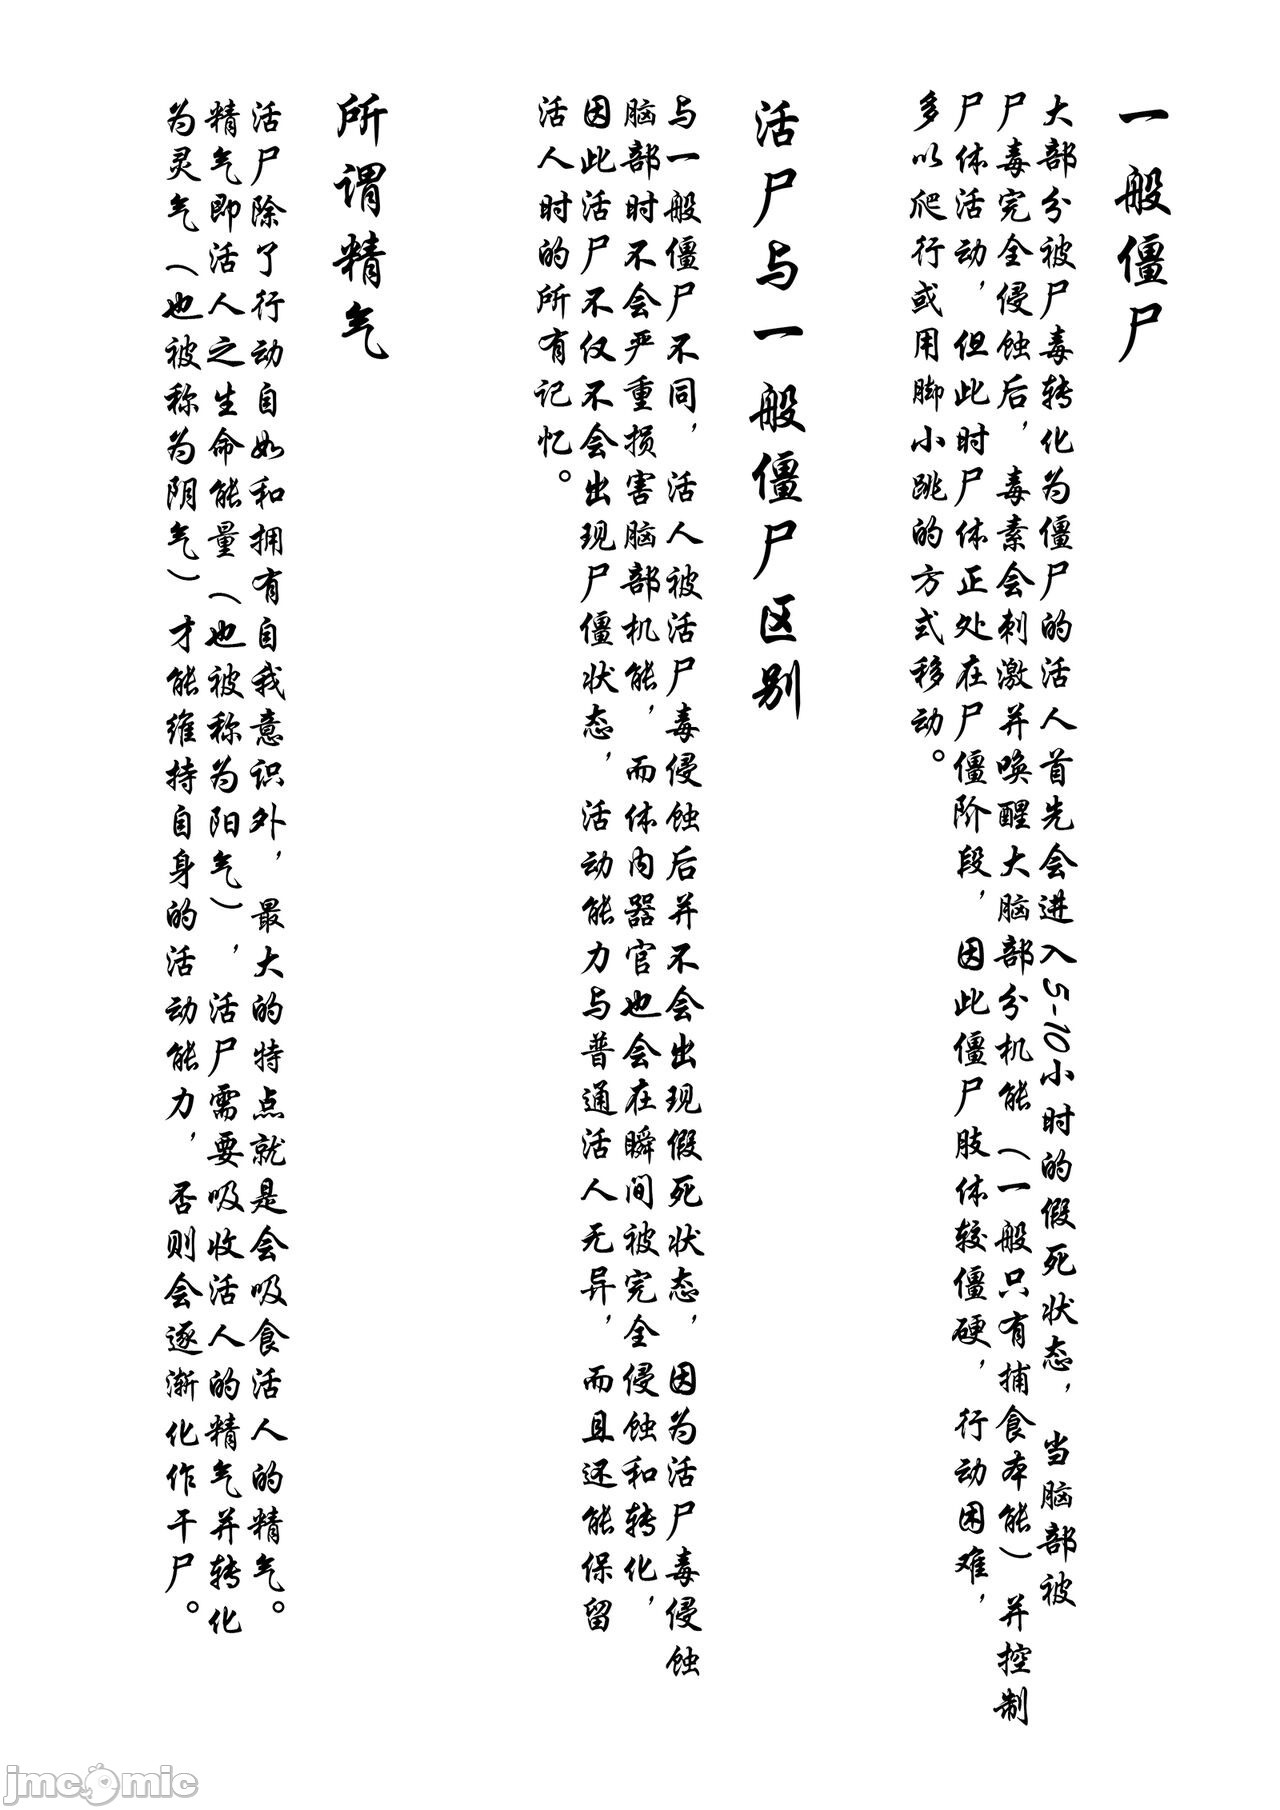 一般僵尸
大部分被尸毒转化为僵尸的活人首先会进入5-10小时的假死状态，当脑部被
尸毒完全侵蚀后，毒素会刺激并唤醒大脑部分机能（一般只有捕食本能）并控制
尸体活动，但此时尸体正处在尸僵阶段，因此僵尸肢体较僵硬，行动困难，
多以爬行或用脚小跳的方式移动。
活尸与一般僵尸区别
与一般僵尸不同，活人被活尸毒侵蚀后并不会出现假死状态，因为活尸毒侵蚀
脑部时不会严重损害脑部机能，而体内器官也会在瞬间被完全侵蚀和转化，
因此活尸不仅不会出现尸僵状态，活动能力与普通活人无异，而且还能保留
活人时的所有记忆。
所谓精气
活尸除了行动自如和拥有自我意识外，最大的特点就是会吸食活人的精气。
精气即活人之生命能量（也被称为阳气），活尸需要吸收活人的精气并转化
为灵气（也被称为阴气）才能维持自身的活动能力，否则会逐渐化作干尸。
jmcomic